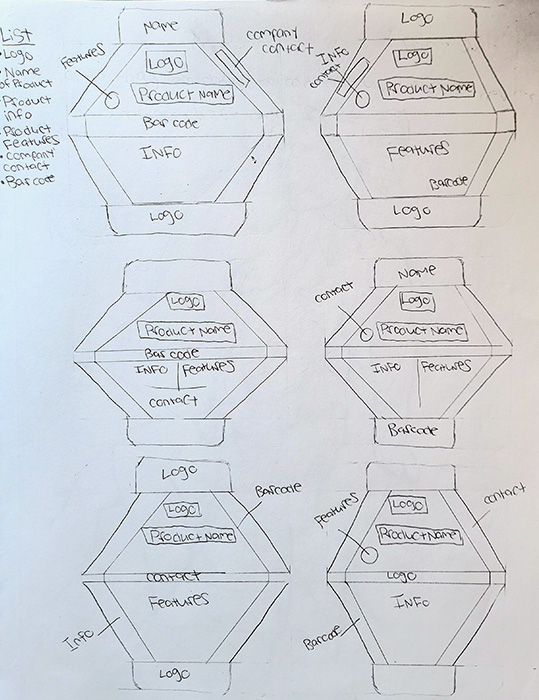 List
• Logo
• Name
of Product
• Product
info
• Product
Features
• company
contact
• Barcode
Name
Features
company
contact
Logo
Product Name
Bar code
INFO
Logo
Logo
INFO
contact
Logo
Product Name
Features
Barcode
Logo
Logo
Product Name
Bar code
INFO Features
contact
Name
contact
Logo
Product Name
INFO Features
Barcode
Logo
Barcode
Logo
Product Name
contact
Features
Info
Logo
Features
contact
Logo
Product Name
Logo
INFO
Barcode